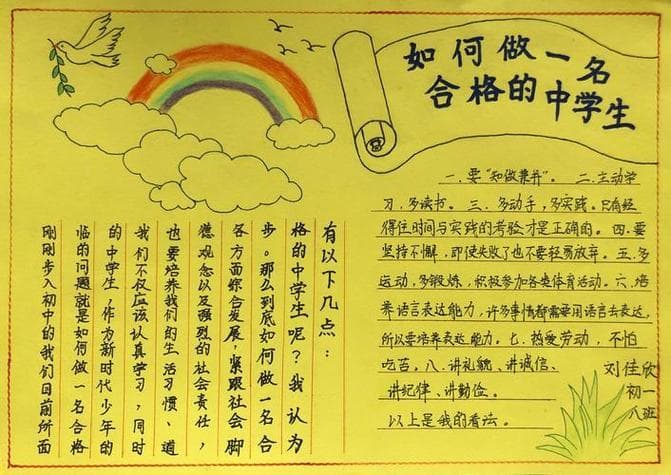 如何做一名
合格的中学生
刚刚步入初中的我们目前所面
临的问题就是如何做一名合格
的中学生，作为新时代少年的
我们不仅应该认真学习，同时
也要培养我们的生活习惯、道
德观念以及强烈的社会责任，
各方面综合发展，紧跟社会脚
步。那么到底如何做一名合
格的中学生呢？我认为
有以下几点：
一.要“知做兼并”。 二.主动学
习，多读书。三.多动手，多实践。只有经
得住时间与实践的考验才是正确的。四.要
坚持不懈，即使失败了也不要轻易放弃。五.多
运动，多锻炼，积极参加各类体育活动。六.培
养语言表达能力，许多事情都需要用语言去表达，
所以要培养表达能力。七.热爱劳动，不怕
吃苦。八.讲礼貌、讲诚信、
讲纪律、讲勤俭。
以上是我的看法。
刘佳欣
初一
八班